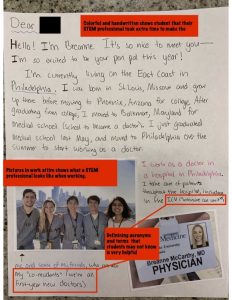 Dear
Colorful and handwritten shows student that their
STEM professional took extra time to make the
Hello! I'm Breanne. It's so nice to meet you—
I'm so excited to be your pen pal this year!
I'm currently living on the East Coast in
Philadelphia. I was born in St. Louis, Missouri and grew
up there before moving to Phoenix, Arizona for college. After
graduating from college, I moved to Baltimore, Maryland for
medical school (school to become a doctor). I just graduated
medical school last May, and moved to Philadelphia over the
summer to start working as a doctor.
Pictures in work attire shows what a STEM
professional looks like when working.
I work as a doctor in
a hospital in Philadelphia.
I take care of patients
throughout the hospital, including
in the ICU (intensive care unit)
Defining acronyms
and terms that
students may not know
is very helpful
me and some of my friends, who are also
my "co-residents" (we're all
first-year new doctors)
Medicine
Breanne McCarthy, MD
PHYSICIAN